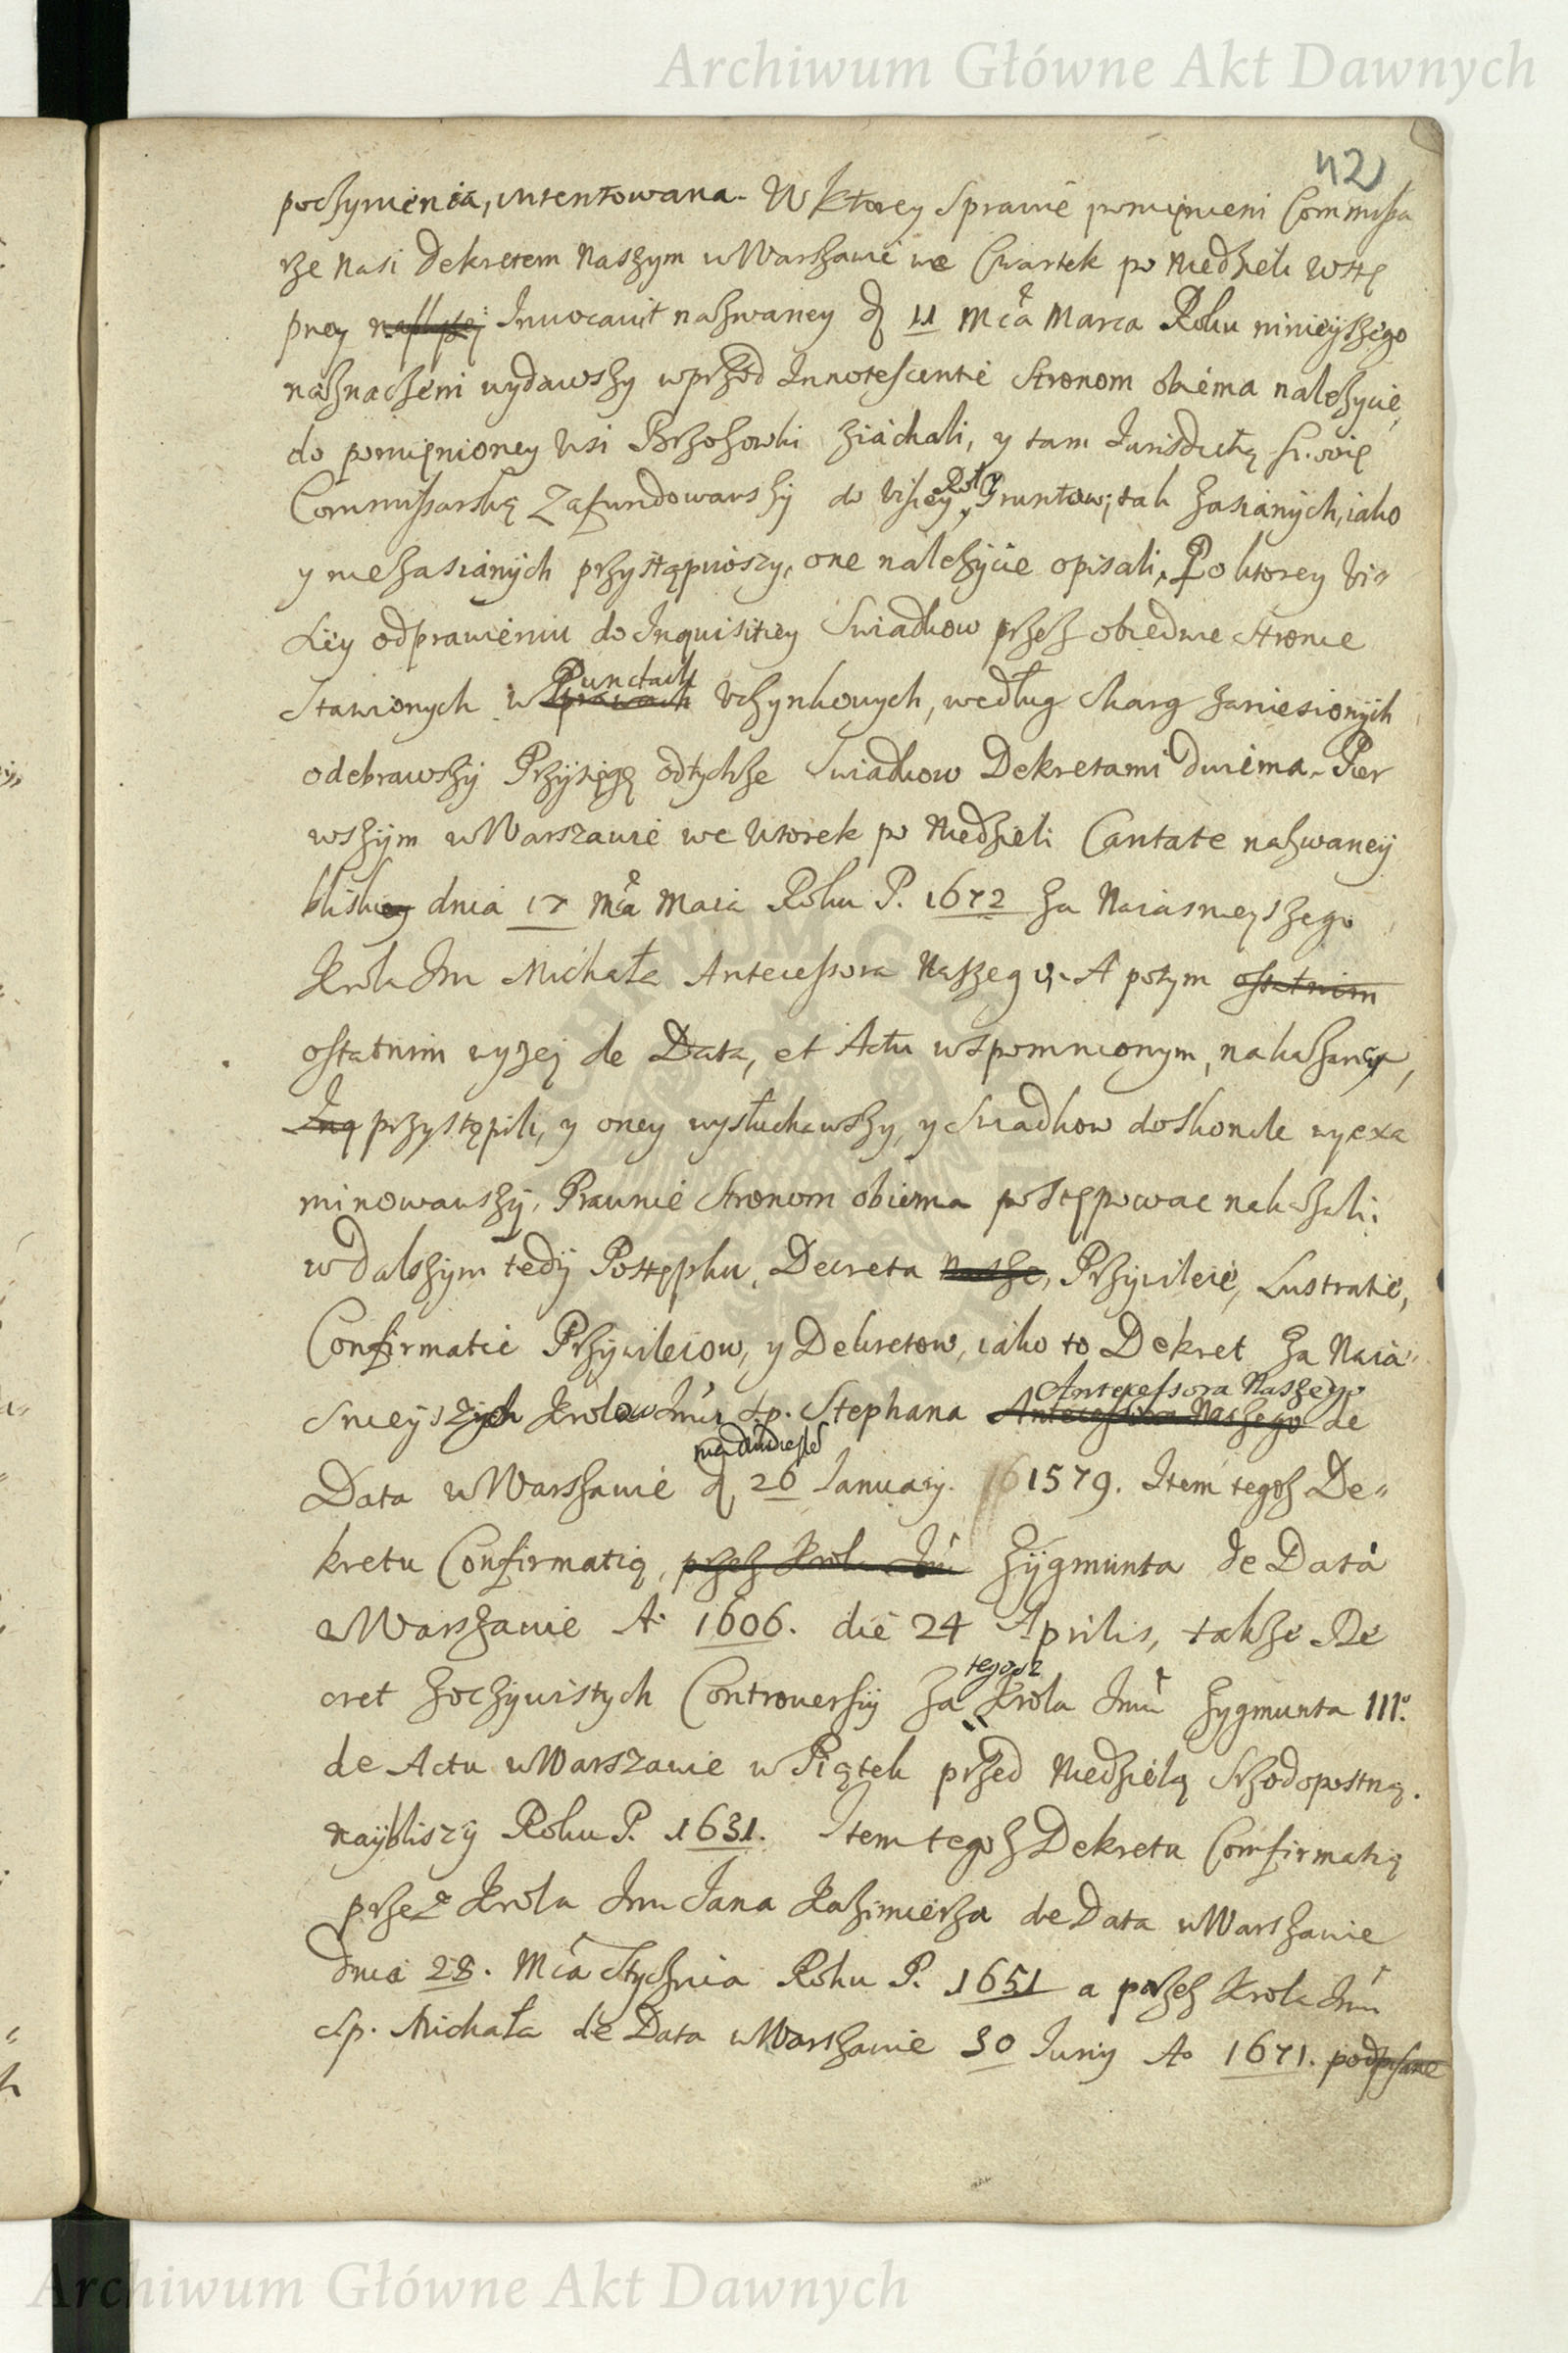 Archiwum Główne Akt Dawnych
42
poczynienia, intentowana. W ktorey Sprawie pomięnieni Commissa
rze Nasi Dekretem Naszym w Warszawie we Czwartek po Niedzieli Wstę
pney Invocavit nazwaney d 11 Mca Marca Roku ninieyszego
naznaczeni wydawszy wprzod Innotescentie Stronom obiema nalezycie,
do pomięnioney Wsi Brzozowki ziachali, y tam Jurisdictą swoię
Commissarską Zafundowawszy do Visiey Rol y Gruntow, tak zasianych, iako
y niezasianych przystąpiwszy, one nalezycie opisali, Po ktorey Vi„
siey odprawieniu do Inquisitiey Swiadkow przez obiedwie Stronie
Stawionych w Punctach Vczynkowych, według Skarg zaniesionych
odebrawszy Przysięgę odtychze Swiadkow Dekretami dwiema. Pier
wszym w Warszawie we Wtorek po Niedzieli Cantate nazwaney
dnia 17 Mca Maia Roku P. 1672 za Naiasnieyszego
Krola Jm Michała Antecessora Naszego, A potym ostatnim
ostatnim wyzej de Data, et Actu wspomnionym,
przystąpili, y oney wysłuchawszy, y Swiadkow doskonale wyexa
minowawszy, Prawnie Stronom obiema postępowac nakazali.
w dalszym tedy Postępku, Decreta Nasze, Przywileie, Lustratie,
Confirmatie Przywileiow, y Dekretow, iako to Dekret za Naia„
Antecessora Naszego
snieyszych Krolow Jmci s.p. Stephana Antecessora Naszego de
Data w Warszawie d 26 January. 1579. Item tegoz De„
kretu Confirmatią, przez Krola Jmci Zygmunta de Data
w Warszawie A. 1606. die 24 Aprilis, takze De
tegosz
cret zoczywistych Controversiy za Krola Jmci Zygmunta III.
de Actu w Warszawie w Piątek przed Niedzielą Srzodopostną.
naybliszy Roku P. 1631. Item tegoz Dekretu Confirmatią
przez Krola Jmci Jana Kazimierza de Data w Warszawie
dnia 28. Mca Stycznia Roku P. 1651 a przez Krola Jmci
s.p. Michała de Data w Warszawie 30 Juny Ao 1671. podpisane
Archiwum Główne Akt Dawnych